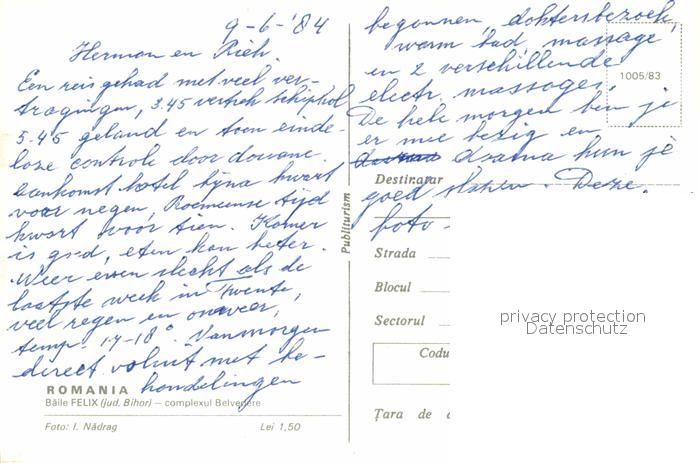 9-6-'84
Herman en Rieh
Een reis gehad met veel ver-
tragingen, 3.45 vertrek schiphol
5.45 geland en toen einde-
loze controle door douane.
Aankomst hotel bijna kwart
voor negen, Roemeense tijd
kwart voor tien. Kamer
is goed, eten kan beter.
Weer even slecht als de
laatste week in Twente,
veel regen en onweer,
temp. 17-18°. Vanmorgen
direct voluit met be-
handelingen
begonnen, doktersbezoek,
warm bad, massage
en 2 verschillende
electr. massages.
De hele morgen ben je
er mee bezig en
daarna kun je
goed slapen. Deze
foto -
1005/83
Destinatar
Strada
Blocul
Sectorul
Codu
Țara de d
Publiturism
ROMANIA
Băile FELIX (jud. Bihor) – complexul Belvedere
Foto: I. Nădrag Lei 1,50
privacy protection
Datenschutz